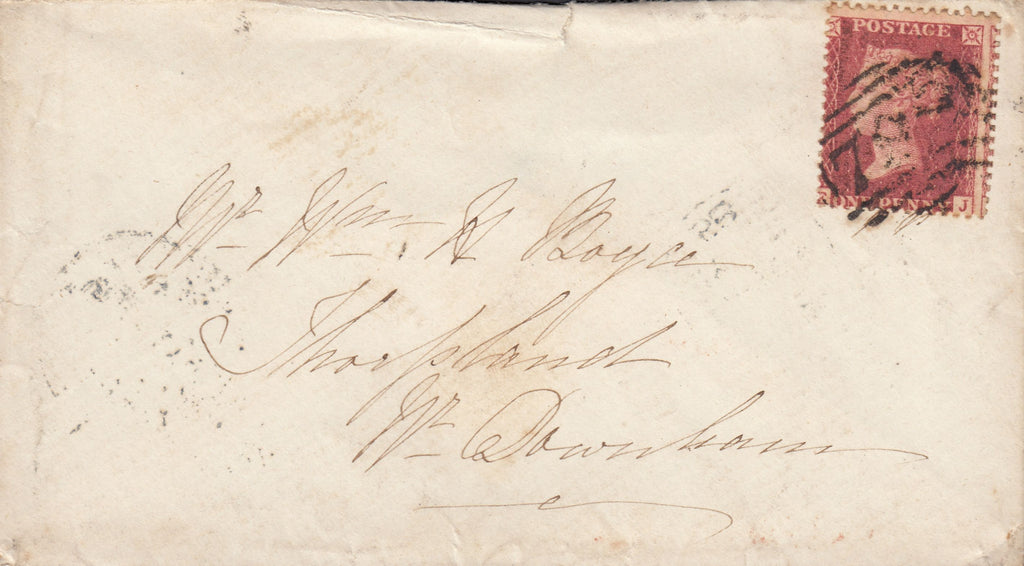 POSTAGE
ONE PENNY
J
Mr Wm H Boyce
Thorpland
Nr Downham